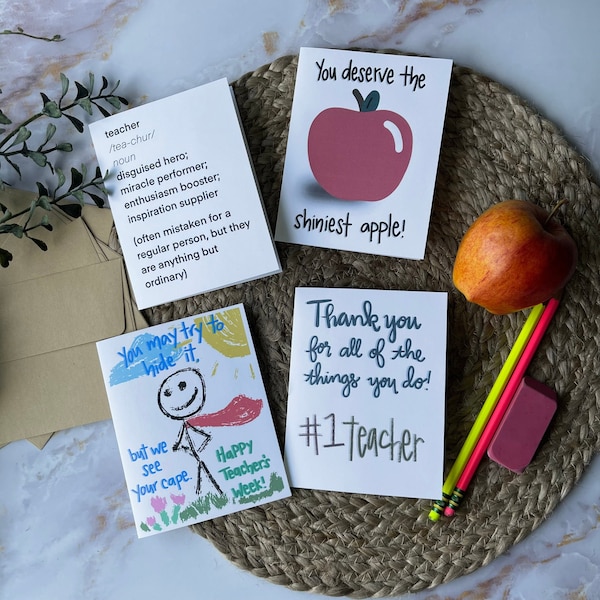 teacher
/tea-chur/
noun
disguised hero;
miracle performer;
enthusiasm booster;
inspiration supplier
(often mistaken for a
regular person, but they
are anything but
ordinary)
You deserve the
shiniest apple!
You may try to
hide it,
but we
see
your cape.
Happy
Teacher's
Week!
Thank you
for all of the
things you do!
#1 teacher